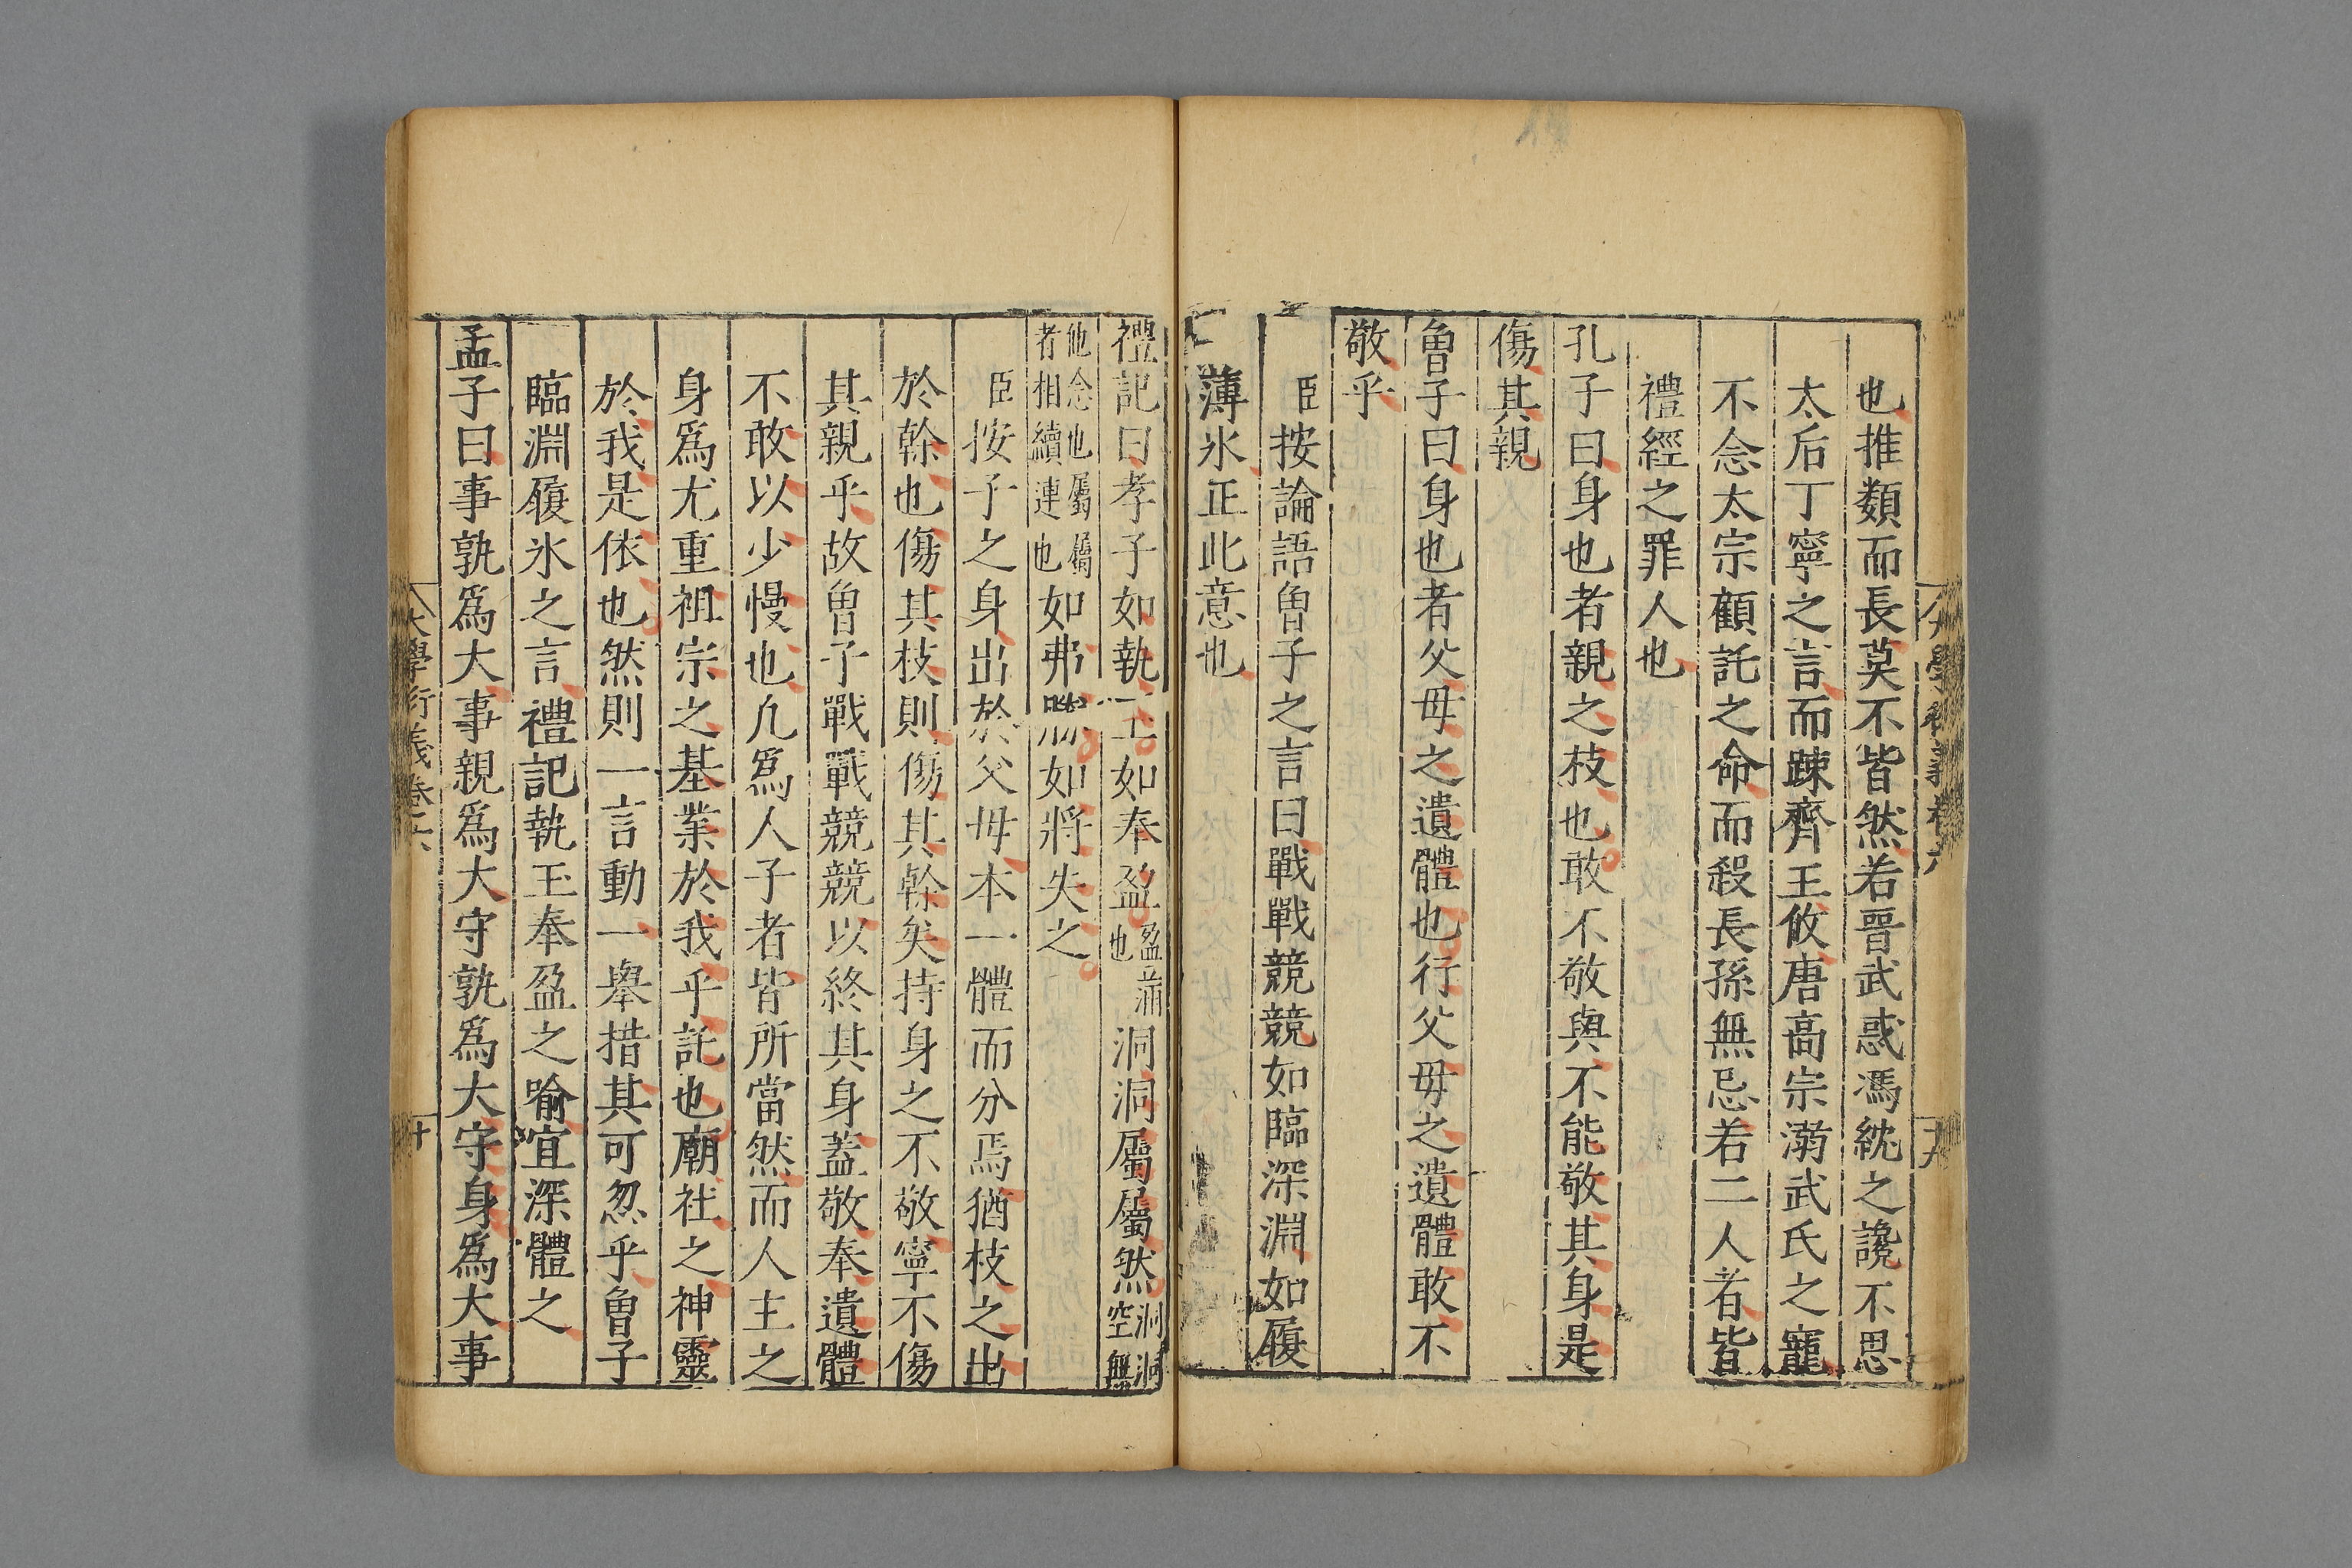 也推類而長莫不皆然若晉武惑馮紞之讒不思
太后丁寧之言而踈齊王攸唐高宗溺武氏之寵
不念太宗顧託之命而殺長孫無忌若二人者皆
禮經之罪人也
孔子曰身也者親之枝也敢不敬與不能敬其身是
傷其親
曾子曰身也者父母之遺體也行父母之遺體敢不
敬乎
臣按論語曾子之言曰戰戰競競如臨深淵如履
薄氷正此意也
禮記曰孝子如執玉如奉盈盈滿也洞洞屬屬然洞洞空無
他念也屬屬者相續連也如弗勝如將失之
臣按子之身出於父母本一體而分焉猶枝之出
於幹也傷其枝則傷其幹矣持身之不敬寧不傷
其親乎故曾子戰戰競競以終其身蓋敬奉遺體
不敢以少慢也凢爲人子者皆所當然而人主之
身爲尤重祖宗之基業於我乎託也廟社之神靈
於我是依也然則一言動一舉措其可忽乎曾子
臨淵履氷之言禮記執玉奉盈之喻宜深體之
孟子曰事孰爲大事親爲大守孰爲大守身爲大事
大學衍義卷六
十九
大學衍義卷六
廿